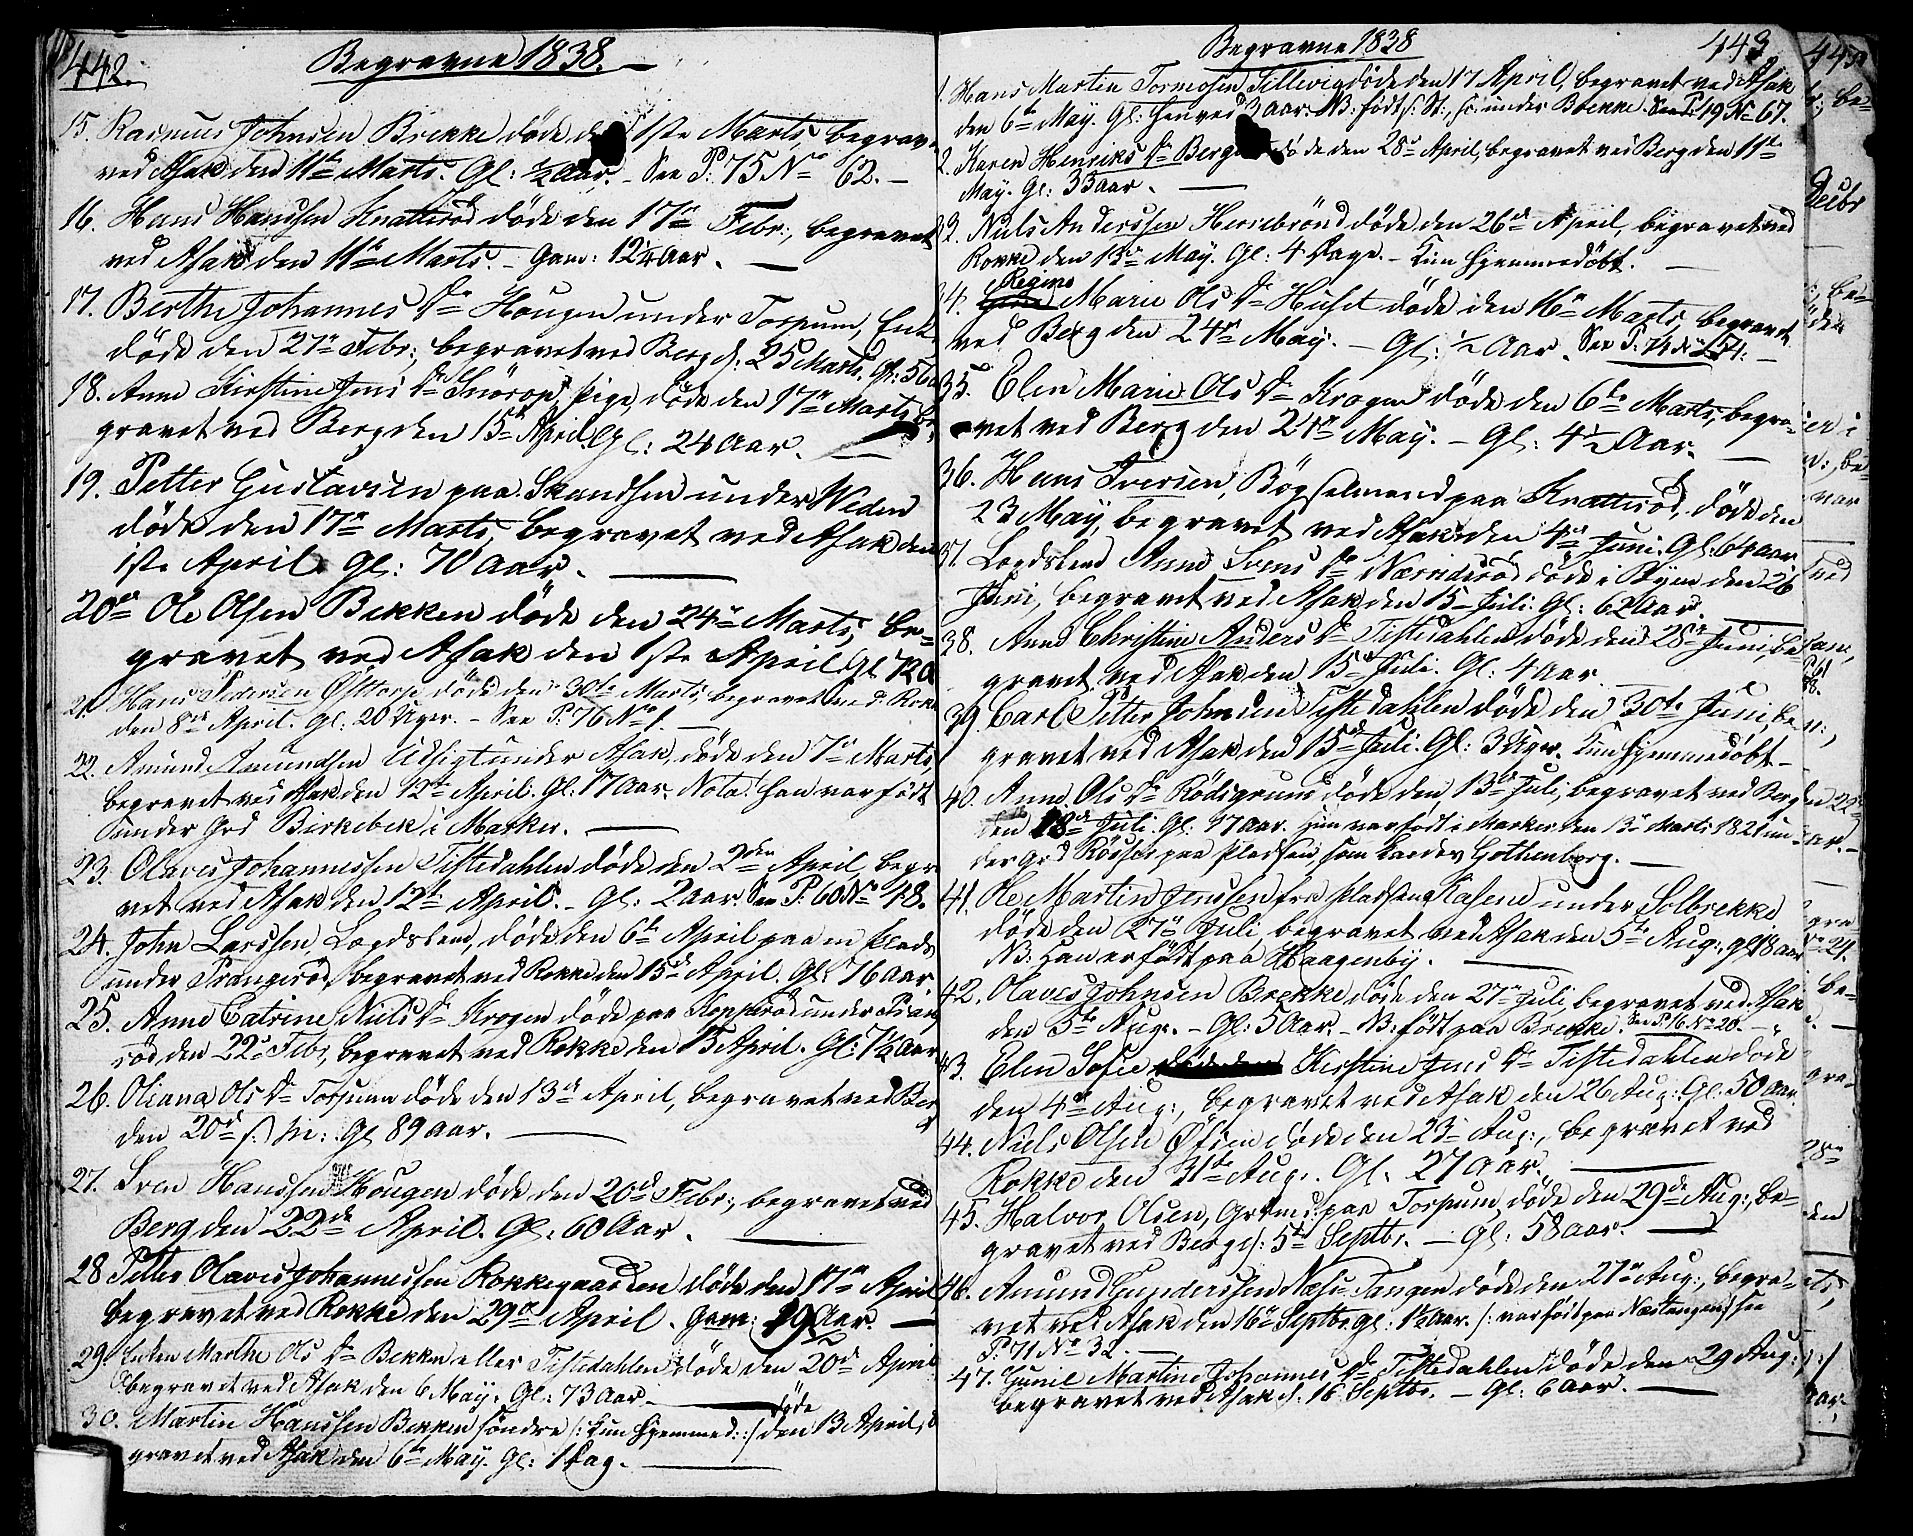 442.
Begravne 1838.
15. Rasmus Johnsen Brekke døde d 1ste Marts, begrav-
ved Asak den 11te Marts. Gl: ½ Aar. - See P: 75 No 62. -
16. Hans Hanssen Knattisrød døde den 17de Febr:, begravet
ved Asak den 11te Marts. - Gam: 12¼ Aar. -
17. Berthe Johannes Dr Hougen under Torpum, Enk
døde den 27de Febr:, begravet ved Berg d: 25 Marts. Gl: 56
18. Anne Kirstine Jens Dr pige, døde den 17de Marts, be-
gravet ved Berg den 15de April. Gl: 24 Aar. -
19. Petter Gustavsen paa Skandsen under Weden
døde den 17de Marts, begravet ved Asak den
1ste April. Gl: 70 Aar. -
20de Ole Olsen Bekken døde den 24de Marts, be-
gravet ved Asak den 1ste April Gl 72 A
21. Hans Pedersen Østtorp døde den 30te Marts, begravet ved Rokk
den 8de April. Gl. 20 Uger. - See P. 76 No 1. -
22. Amund Amundsen Udsigt under Asak, døde den 7de Marts,
begravet ved Asak den 12te April. Gl: 17 Aar. Nota: han var født
under Grd Birkebek i Marker. -
23. Olaves Johannessen Tistedahlen døde den 2den April, begr
vet ved Asak den 12te April. - Gl: 2 Aar. See P. 60 No 48.
24. John Larssen, Lægdslem, døde den 6te April paa en Plads
under Prangerød, begravet ved Rokke den 15de April. Gl: 76 Aar.
25. Anne Catrine Niels Dr Krogen døde paa under Prang
rød den 22de Febr, begravet ved Rokke den 15 April. Gl: 7½ Aar
26. Oliana Ols Dr Torpum døde den 13de April, begravet ved Ber
den 20de s: m: Gl 89 Aar. -
27. Sven Hanssen Hougen døde den 20de Febr:, begravet ved
Berg den 22de April. Gl: 60 Aar. -
28 Petter Olaves Johannessen Rokkegaarden døde den 17de April
begravet ved Rokke den 29de April. Gam: 19 Aar. -
29. Enken Marthe Ols Dr Bekken eller Tistedahlen døde den 20de April
begravet ved Asak den 6 May. Gl: 73 Aar. -
30. Martin Hanssen Bekken søndre /: kun hjemmed: :/ døde den 13 April, b
gravet ved Asak den 6te May. Gl: 1 Dag. -
Begravne 1838
443
1. Hans Martin Tormosen Tillevig døde den 17 April, begravet ved Asak
den 6te May. Gl: henved 3 Aar. NB: født under Brenne. See P: 19 No 67.
2. Karen Henriks Dr Berg døde den 28de April, begravet ved Berg den 11te
May. Gl: 33 Aar. -
32. Niels Anderssen Herrebrønd døde den 26de April, begravet ved
Rokke den 13de May. Gl: 4 Dage. - Kun hjemmedøbt. -
Regine
34. Marie Ols Dr Huset døde den 16de Marts, begravet
ved Berg den 24de May. - Gl: ½ Aar. See P: 74 No 54. -
35. Elen Marie Ols Dr Krogen døde den 6te Marts, begra-
vet ved Berg den 24de May. - Gl: 4½ Aar. -
36. Hans Iversen, Bøgselmand paa Knattisrød, døde den
23 May, begravet ved Asak den 4de Juni. Gl: 64 Aar
37. Lægdslem Anne Svens Dr Næridsrød døde i Byen den 26
Juni, begravet ved Asak den 15 Juli. Gl: 62 Aar. -
38. Anne Christine Anders Dr Tistedahlen døde den 28de Juni, be
gravet ved Asak den 15de Juli. Gl: 4 Aar. -
39. Carl Petter Johnsen Tistedahlen døde den 30te Juni be
gravet ved Asak den 15de Juli. Gl: 3 Uger. Kun hjemmedøbt. -
40. Anne Ols Dr Rødsgrund døde den 13de Juli, begravet ved Berg
den 18de Juli. Gl: 17 Aar. Hun var født i Marker den 13de Marts 1821 un-
der Grd paa Pladsen som kaldes Gothenborg. -
41. Ole Martin Jenssen fra Pladsen Kasene under Solbrekke
døde den 27de Juli, begravet ved Asak den 5te Aug: gl: 18 Aar
NB: Han er født paa Haagenby. -
42. Olaves Johnsen Brekke døde den 27de Juli, begravet ved Asak
den 5te Aug. - Gl: 5 Aar. - NB: født paa Brekke. See P. 16 No 20. -
43. Elen Sofie Kirstine Jens Dr Tistedahlen døde
den 4de Aug:, begravet ved Asak den 26 Aug: Gl: 50 Aar.
44. Niels Olsen Øfsen døde den 23de Aug:, begravet ved
Rokke den 31te Aug. Gl. 27 Aar. -
45. Halvor Olsen, Grdmd: paa Torpum, døde den 29de Aug:, be-
gravet ved Berg d: 5te Septbr. - Gl: 58 Aar. -
46. Amund Gunderssen Næs-Tangen døde den 27de Aug:, begra-
vet ved Asak den 16de Septbr. gl: 1½ Aar. /: var født paa Næstangen :/ See
P: 71 No 32. -
47. Gunil Martine Johannes Dr Tistedahlen døde den 29 Aug:
begravet ved Asak d. 16 Septbr. - Gl: 6 Aar. -